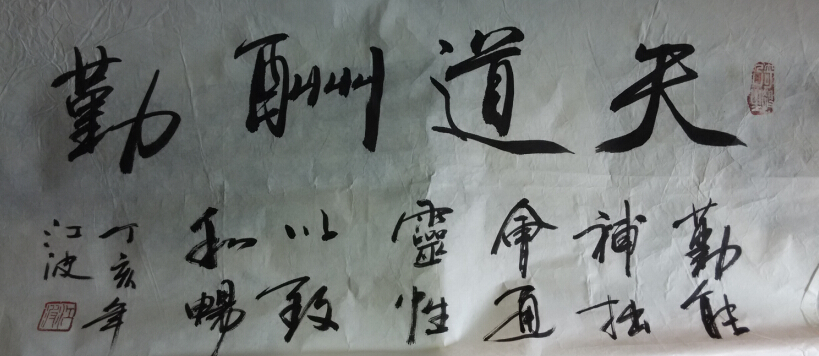 天道酬勤
勤能
補拙
會通
靈性
以致
和暢
丁亥年
江波